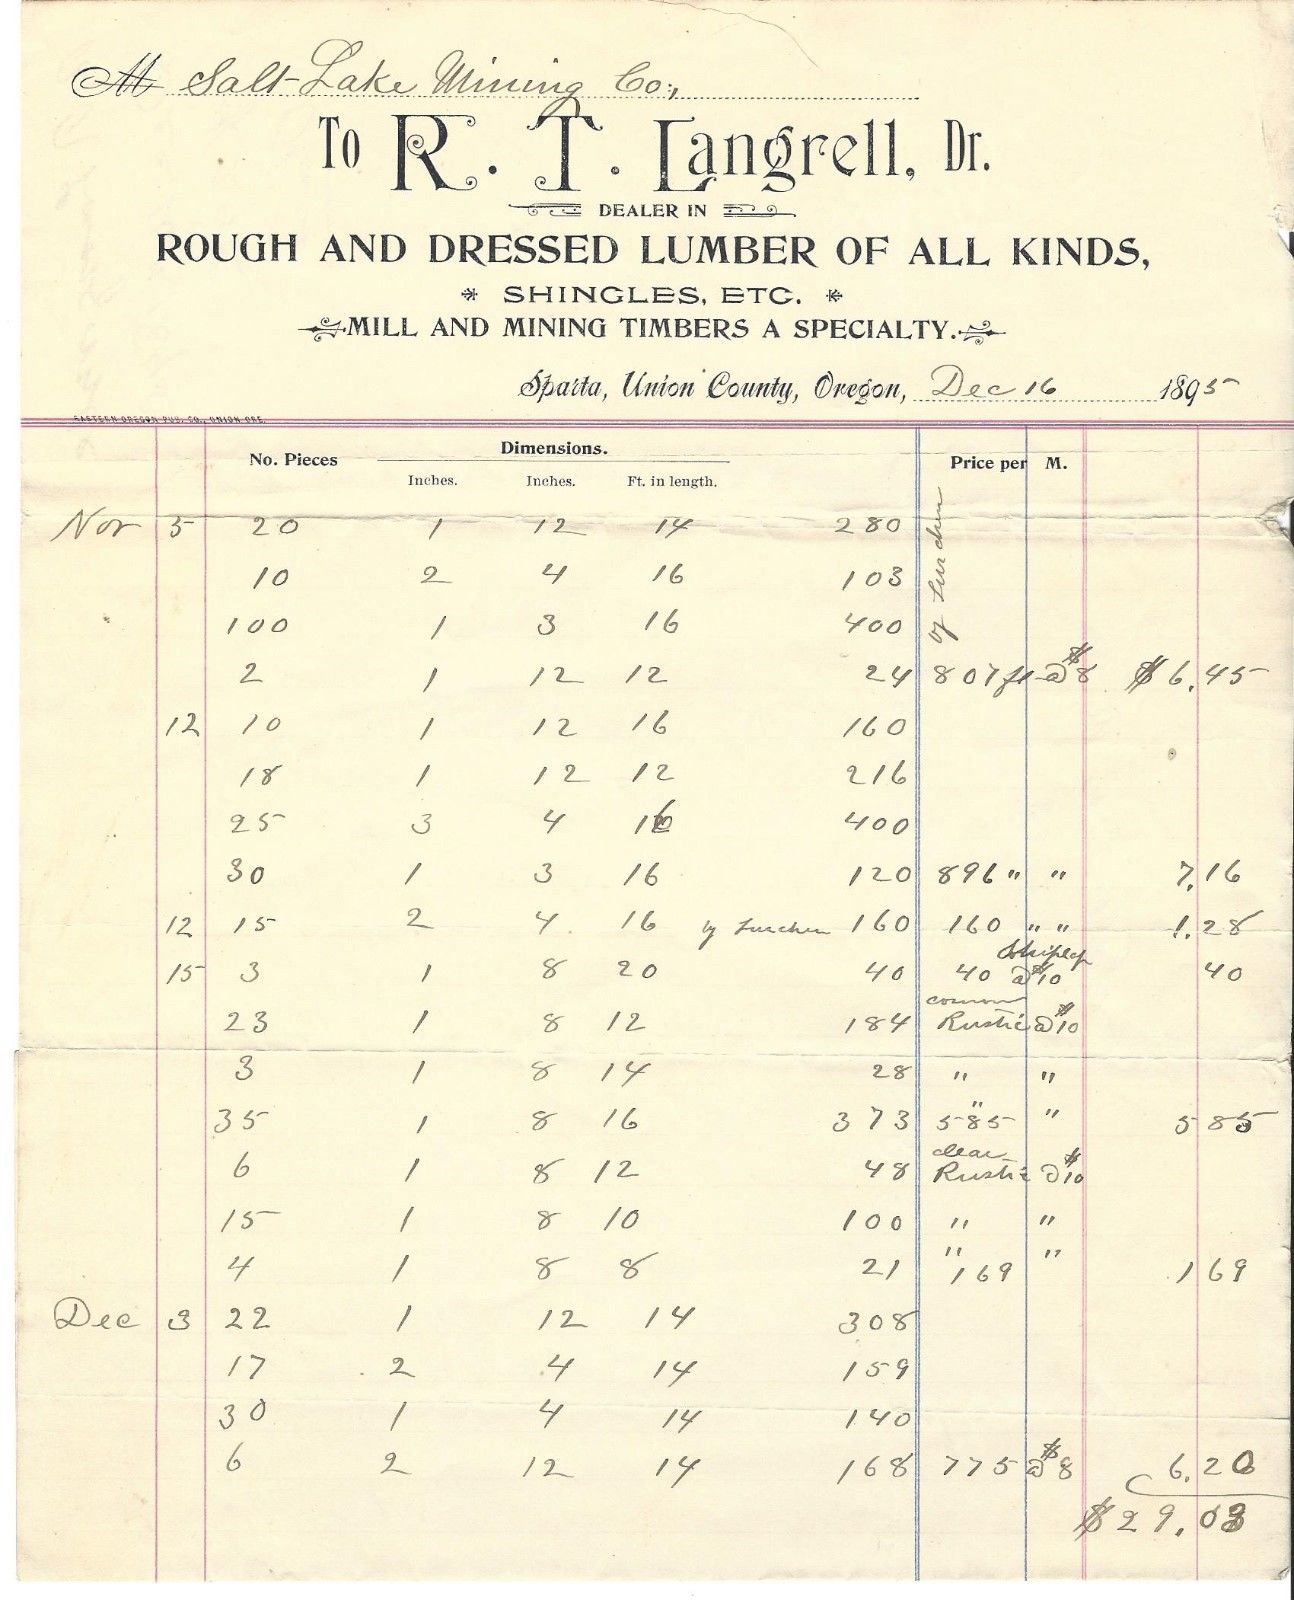 M Salt Lake Mining Co.,
To R. T. Langrell, Dr.
DEALER IN
ROUGH AND DRESSED LUMBER OF ALL KINDS,
SHINGLES, ETC.
MILL AND MINING TIMBERS A SPECIALTY.
Sparta, Union County, Oregon, Dec 16 1895
EASTERN OREGON PUB. CO., UNION ORE.
No. Pieces Dimensions. Price per M.
Inches. Inches. Ft. in length.
Nov 5 20 1 12 14 280
10 2 4 16 103
100 1 3 16 400
by
2 1 12 12 24 807 ft @ $8 $6.45
12 10 1 12 16 160
18 1 12 12 216
25 3 4 16 400
30 1 3 16 120 896 " " 7.16
12 15 2 4 16 by 160 160 " " 1.28
Shiplap
15 3 1 8 20 40 40 @ $10 40
common
23 1 8 12 184 Rustic @ $10
3 1 8 14 28 " "
35 1 8 16 373 " 585 " 5 85
clear
6 1 8 12 48 Rustic @ $10
15 1 8 10 100 " "
4 1 8 8 21 " 169 " 1 69
Dec 3 22 1 12 14 308
17 2 4 14 159
30 1 4 14 140
6 2 12 14 168 775 @ $8 6.20
$29.03